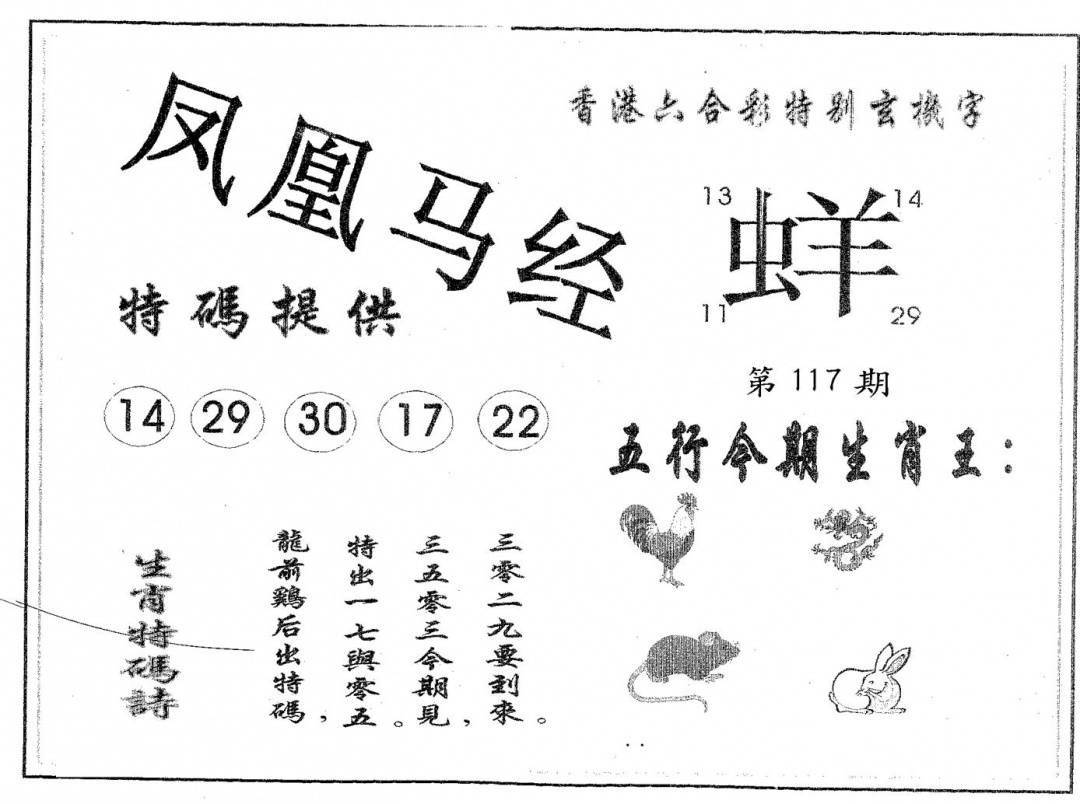 凤凰马经
香港六合彩特别玄機字
13 14
蛘
11 29
特碼提供
第117期
14 29 30 17 22
五行今期生肖王：
生肖特碼詩
龍前鷄后出特碼，
特出一七與零五。
三五零三今期見，
三零二九要到來。